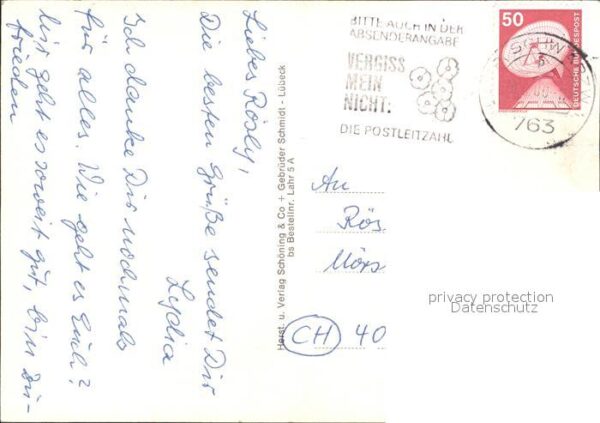 Liebes Rösly,
Die besten Grüße sendet Dir
Lydia
Ich danke Dir nochmals
für alles. Wie geht es Euch?
Mir geht es soweit gut, bin zu-
frieden
Herst. u. Verlag Schöning & Co + Gebrüder Schmidt - Lübeck
bs Bestellnr. Lahr 5 A
BITTE AUCH IN DER
ABSENDERANGABE
VERGISS
MEIN
NICHT:
DIE POSTLEITZAHL
50
DEUTSCHE BUNDESPOST
763
An
Rös
Mörs
CH 40
privacy protection
Datenschutz